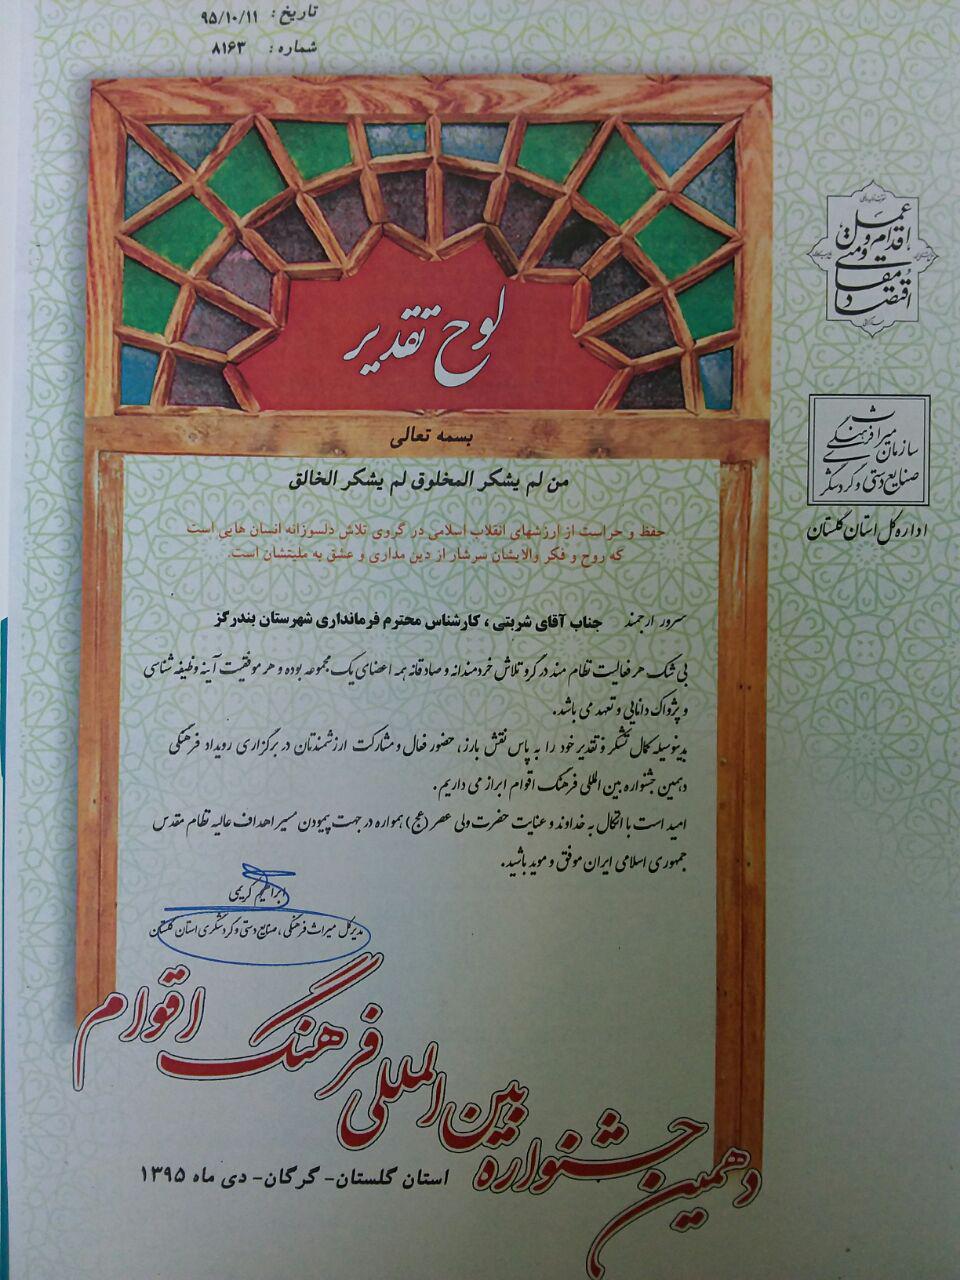 تاریخ : ۹۵/۱۰/۱۱
شماره : ۸۱۶۳
اقدام و عمل
اقتصاد مقاومتی
سازمان میراث فرهنگی
صنایع دستی و گردشگری
اداره کل استان گلستان
لوح تقدیر
بسمه تعالی
من لم یشکر المخلوق لم یشکر الخالق
حفظ و حراست از ارزشهای انقلاب اسلامی در گروی تلاش دلسوزانه انسان هایی است
که روح و فکر والایشان سرشار از دین مداری و عشق به ملیتشان است.
سرور ارجمند جناب آقای شربتی ، کارشناس محترم فرمانداری شهرستان بندرگز
بی شک هر فعالیت نظام مند در گرو تلاش خردمندانه و صادقانه همه اعضای یک مجموعه بوده و هر موفقیت آینه وظیفه شناسی
و پژواک دانایی و تعهد می باشد.
بدینوسیله کمال تشکر و تقدیر خود را به پاس نقش بارز، حضور فعال و مشارکت ارزشمندتان در برگزاری رویداد فرهنگی
دهمین جشنواره بین المللی فرهنگ اقوام ابراز می داریم.
امید است با اتکال به خداوند و عنایت حضرت ولی عصر (عج) همواره در جهت پیمودن مسیر اهداف عالیه نظام مقدس
جمهوری اسلامی ایران موفق و موید باشید.
ابراهیم کریمی
مدیرکل میراث فرهنگی ، صنایع دستی و گردشگری استان گلستان
دهمین جشنواره بین المللی فرهنگ اقوام
استان گلستان- گرگان- دی ماه ۱۳۹۵